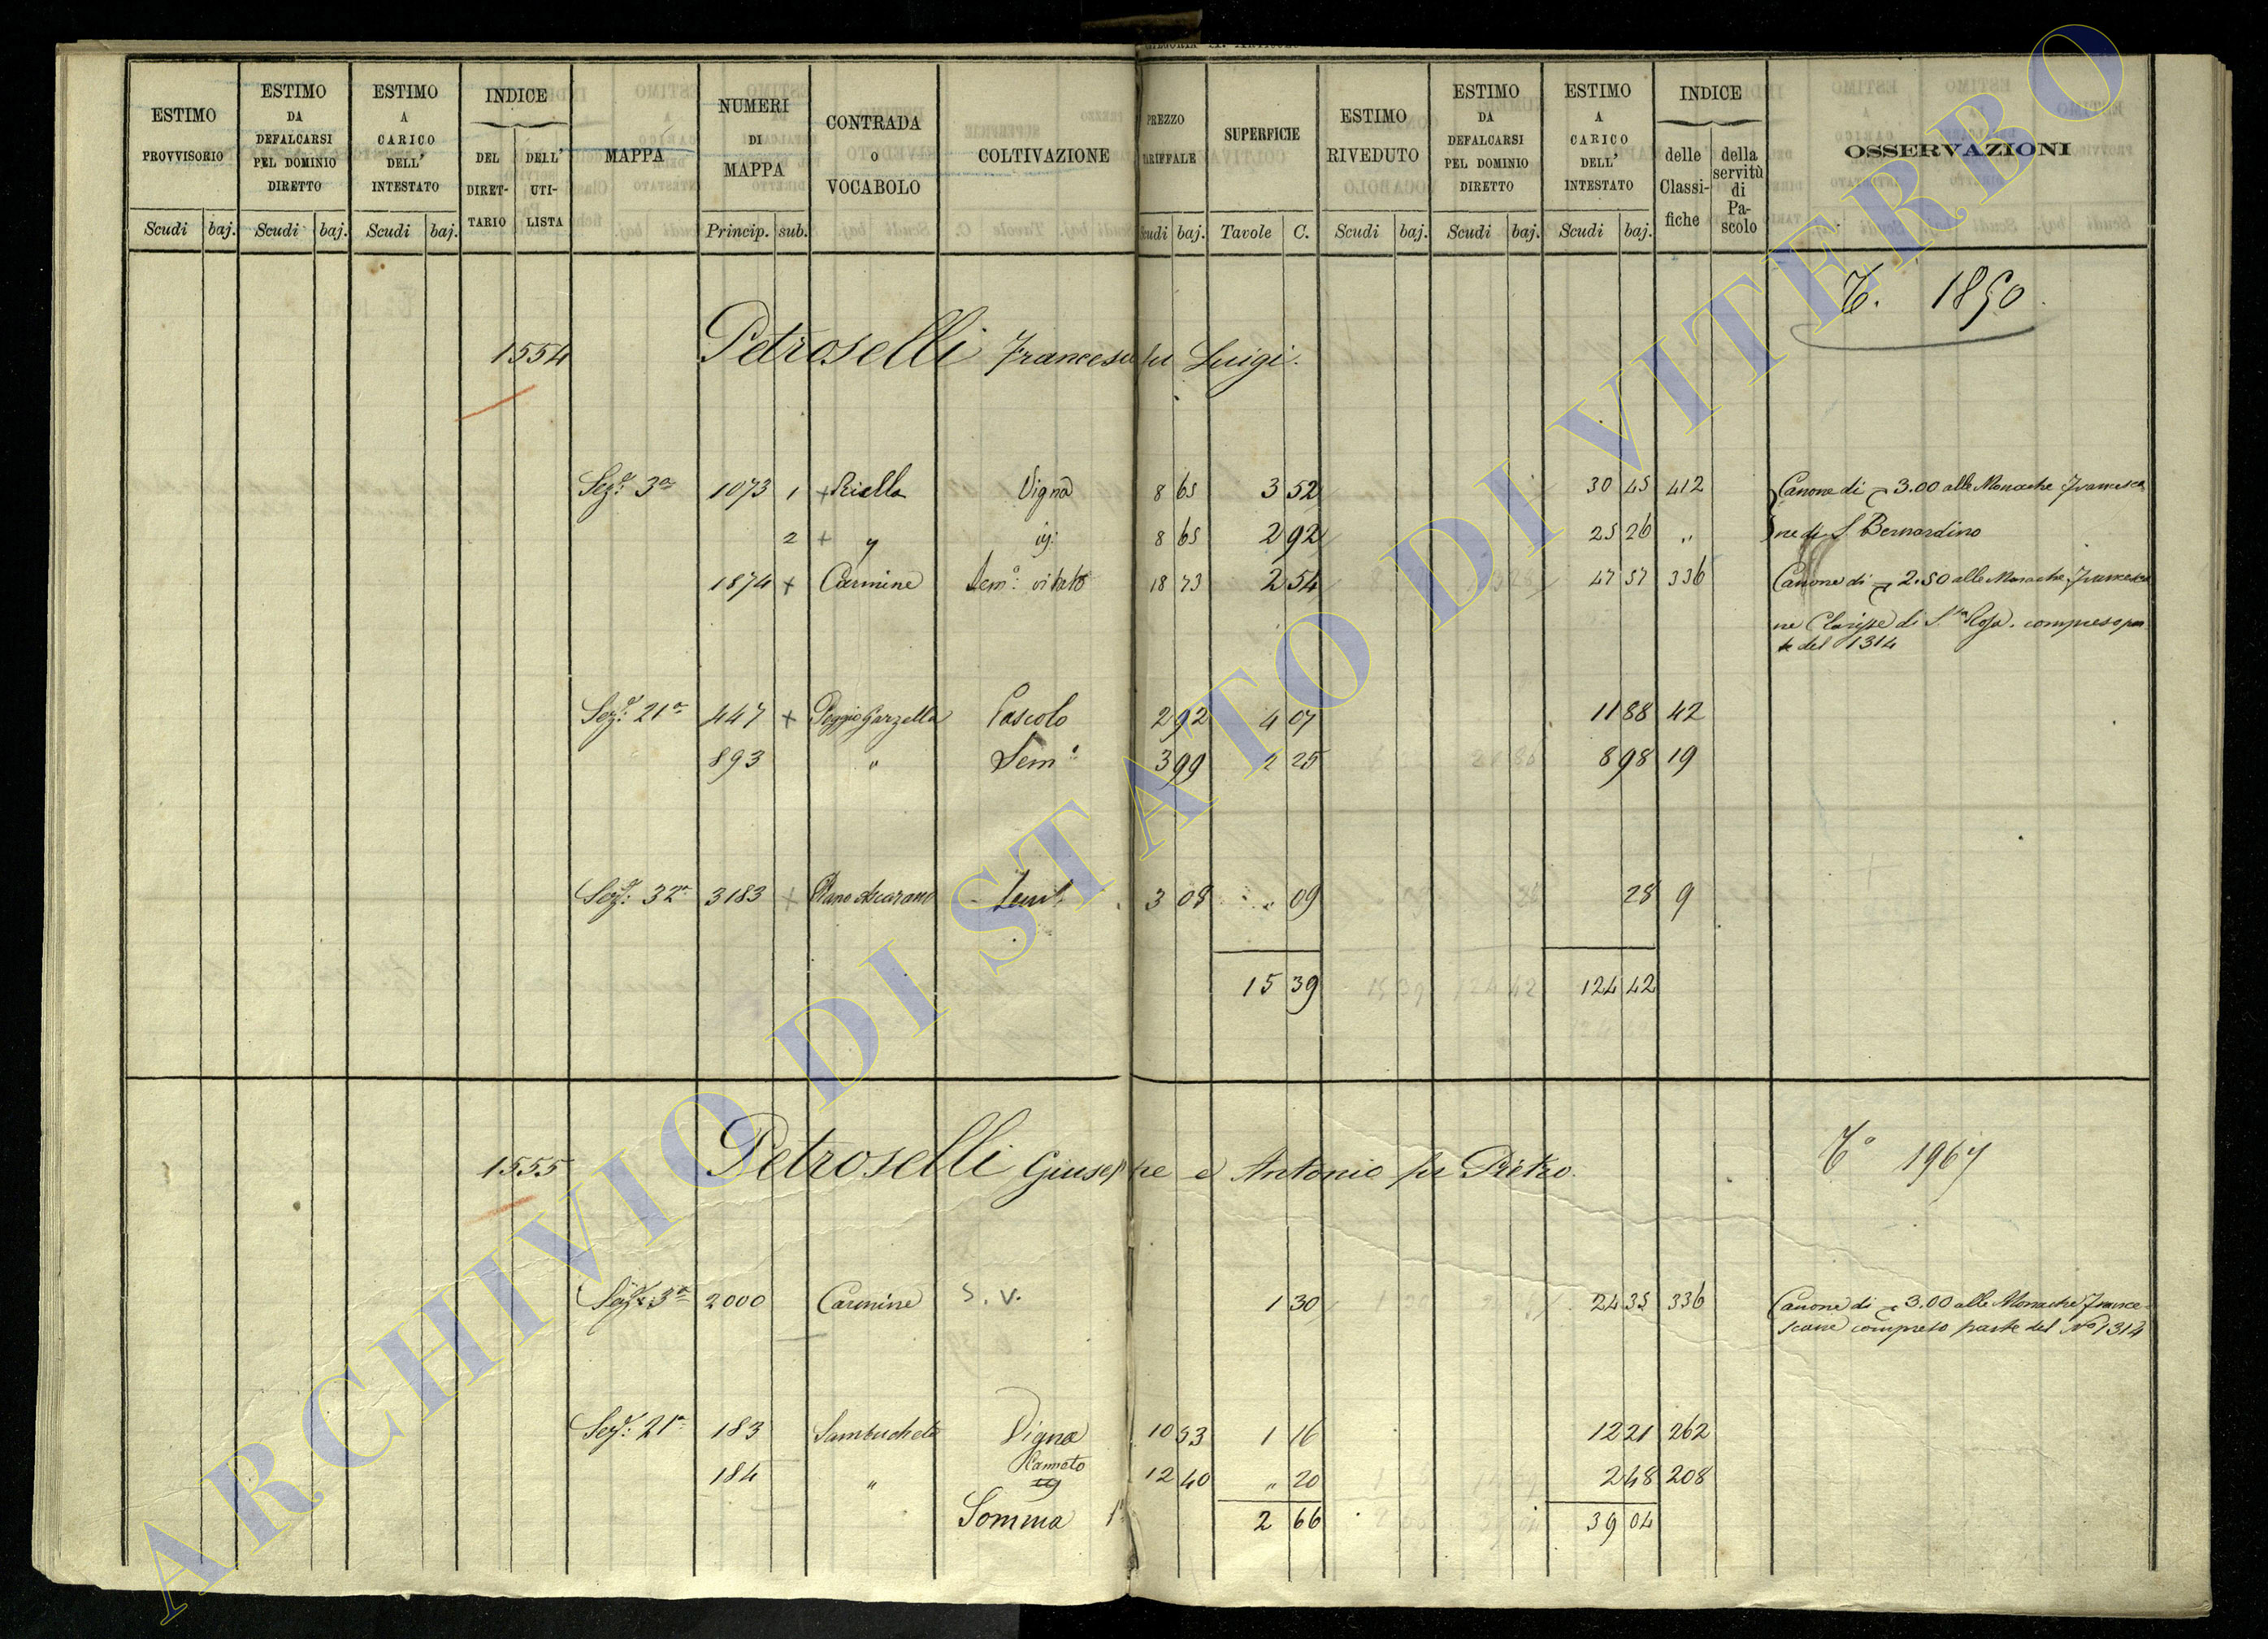 ESTIMO PROVVISORIO Scudi baj.
ESTIMO DA DEFALCARSI PEL DOMINIO DIRETTO Scudi baj.
ESTIMO A CARICO DELL' INTESTATO Scudi baj.
INDICE DEL DIRET-TARIO DELL' UTI-LISTA
MAPPA
NUMERI DI MAPPA Princip. sub.
CONTRADA O VOCABOLO
COLTIVAZIONE
PREZZO TARIFFALE Scudi baj.
SUPERFICIE Tavole C.
ESTIMO RIVEDUTO Scudi baj.
ESTIMO DA DEFALCARSI PEL DOMINIO DIRETTO Scudi baj.
ESTIMO A CARICO DELL' INTESTATO Scudi baj.
INDICE delle Classi-fiche della servitù di Pa-scolo
OSSERVAZIONI
1850
1554 Petroselli Francesco fu Luigi.
Sez.e 3a 1073 1 + Riello Vigna 8 65 3 52 30 45 412 Canone di 3.00 alle Monache Francesca
2 + " ig. 8 65 2 92 25 26 " ne di S. Bernardino
1874 + Carmine Sem.o vitato 18 73 2 54 47 57 336 Canone di 2.50 alle Monache Francesca
ne Clarisse di S.ta Rosa. compreso par
te del 1314
Sez.e 21a 447 + Poggio Garzella Pascolo 2 92 4 07 11 88 42
893 " Sem.o 3 99 2 25 8 98 19
Sez.e 32a 3183 + Piano Ascarano Sem.o 3 08 " 09 28 9
15 39 124 42
1555 Petroselli Giuseppe e Antonio fu Pietro.
1967
Sez.e 3a 2000 Carmine S. V. 1 30 24 35 336 Canone di 3.00 alle Monache France-
scane compreso parte del No 1314
Sez.e 21a 183 Sambucheto Vigna 10 53 1 16 12 21 262
184 " Canneto 12 40 " 20 2 48 208
Somma 2 66 39 04
ARCHIVIO DI STATO DI VITERBO